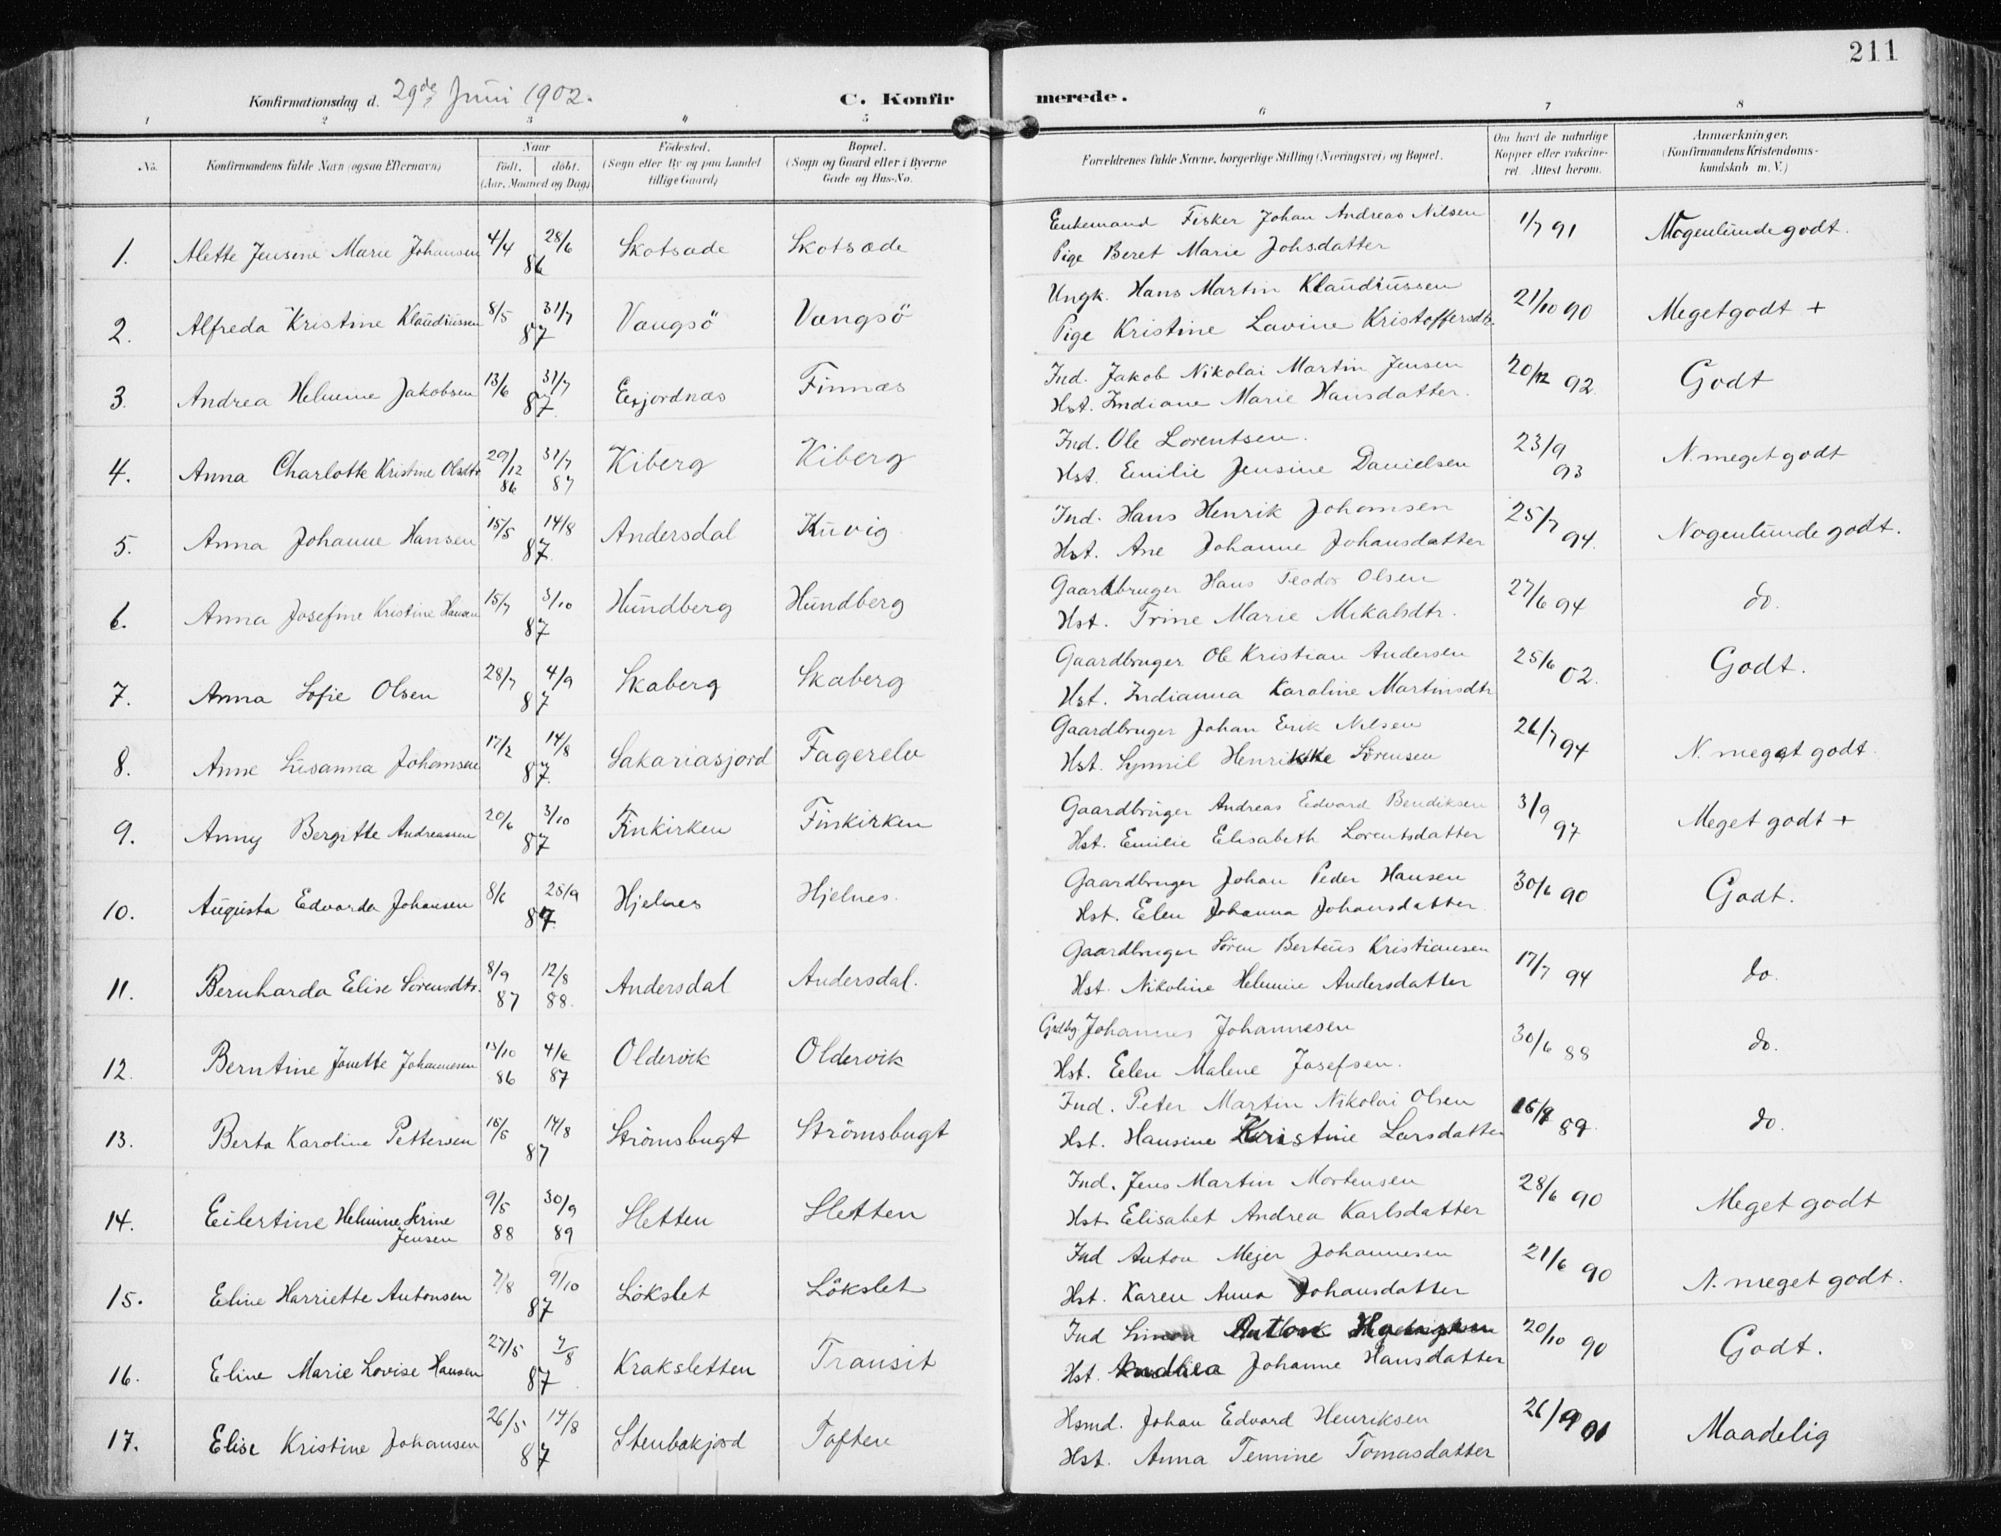 211
Konfirmationsdag d. 29de Juni 1902.
C. Konfirmerede.
1 2 3 4 5 6 7 8
No.
Konfirmandens fulde Navn (ogsaa Efternavn)
Naar
født. døbt.
(Aar, Maaned og Dag)
Fødested.
(Sogn eller By og paa Landet
tillige Gaard)
Bopæl.
(Sogn og Gaard eller i Byerne
Gade og Hus-No.
Forældrenes fulde Navne, borgerlige Stilling (Næringsvei) og Bopæl.
Om havt de naturlige
Kopper eller vakcine-
ret. Attest herom.
Anmærkninger.
(Konfirmandens Kristendoms-
kundskab m. V.)
1. Alette Jensine Marie Johansen 4/4 28/6 86 Skotsæde Skotsæde
Enkemand Fisker Johan Andreas Nilsen
Pige Beret Marie Johsdatter
1/7 91 Nogenlunde godt.
2. Alfreda Kristine Klaudiussen 8/5 31/7 87 Vengsö Vengsö
Ungk. Hans Martin Klaudiussen
Pige Kristine Lavine Kristoffersdtr.
21/10 90 Meget godt +
3. Andrea Helmine Jakobsen 13/6 31/7 87 Exjordnæs Finnæs
Ind. Jakob Nikolai Martin Jensen
Hst. Indiane Marie Hansdatter.
20/12 92 Godt
4. Anna Charlotte Kristine Olsdtr 29/12 86 31/7 87 Kiberg Kiberg
Ind. Ole Lorentsen.
Hst. Emilie Jensine Danielsen
23/9 93 N. meget godt
5. Anna Johanne Hansen 15/5 14/8 87 Andersdal Kuvig
Ind. Hans Henrik Johansen
Hst. Ane Johanne Johansdatter
25/7 94. Nogenlunde godt.
6. Anna Josefine Kristine Hansen 15/7 3/10 87 Hundberg Hundberg
Gaardbruger Hans Teodor Olsen
Hst. Trine Marie Mikalsdtr.
27/6 94 do.
7. Anna Sofie Olsen 28/7 4/9 87 Skaberg Skaberg
Gaardbruger Ole Kristian Andersen
Hst. Indianna Karoline Martinsdtr
25/6 02. Godt.
8. Anne Susanna Johansen 17/2 14/8 87. Sakariasjord Fagerelv
Gaardbruger Johan Erik Nilsen
Hst. Synnil Henrikke Sörensen
26/7 94 N. meget godt.
9. Anny Bergitte Andreassen 20/6 3/10 87 Finkirken Finkirken
Gaardbruger Andreas Edvard Bendiksen
Hst. Emilie Elisabeth Lorentsdatter
3/9 97 Meget godt +
10. Augusta Edvarda Johansen 8/6 25/9 87. Hjelnes Hjelnes.
Gaardbruger Johan Peder Hansen
Hst. Elen Johanna Johansdatter
30/6 90 Godt.
11. Bernharda Elise Sörensdtr. 8/9 87 12/8 88. Andersdal Andersdal.
Gaardbruger Sören Berteus Kristiansen
Hst. Nikoline Helmine Andersdatter
17/7 94 do.
12. Berntine Jonette Johannesen 13/10 86 4/6 87 Oldervik Oldervik
Grdbg Johannes Johannesen
Hst. Elen Malene Josefsen.
30/6 88 do.
13. Berta Karoline Pettersen 15/5 14/8 87 Strömsbugt Strömsbugt
Ind. Peter Martin Nikolai Olsen
Hst. Hansine Kristine Larsdatter
89. do.
14. Eilertine Helmine Serine
Jensen 9/5 88 30/9 89 Sletten Sletten
Ind. Jens Martin Mortensen
Hst. Elisabet Andrea Karlsdatter
28/6 90 Meget godt
15. Eline Harriette Antonsen 7/8 9/10 87 Lökslet Lökslet
Ind Anton Mejer Johannesen
Hst. Karen Anna Johansdatter
21/6 90 N. meget godt.
16. Eline Marie Lovise Hansen 27/5 7/8 87. Kraksletten Transit
Ind Simon Anton
Hst. Johanne Hansdatter
20/10 90 Godt.
17. Elise Kristine Johansen 26/5 14/8 87 Stenbakjord Toften
Hsmd. Johan Edvard Henriksen
Hst. Anna Temine Tomasdatter
26/9 01 Maadelig